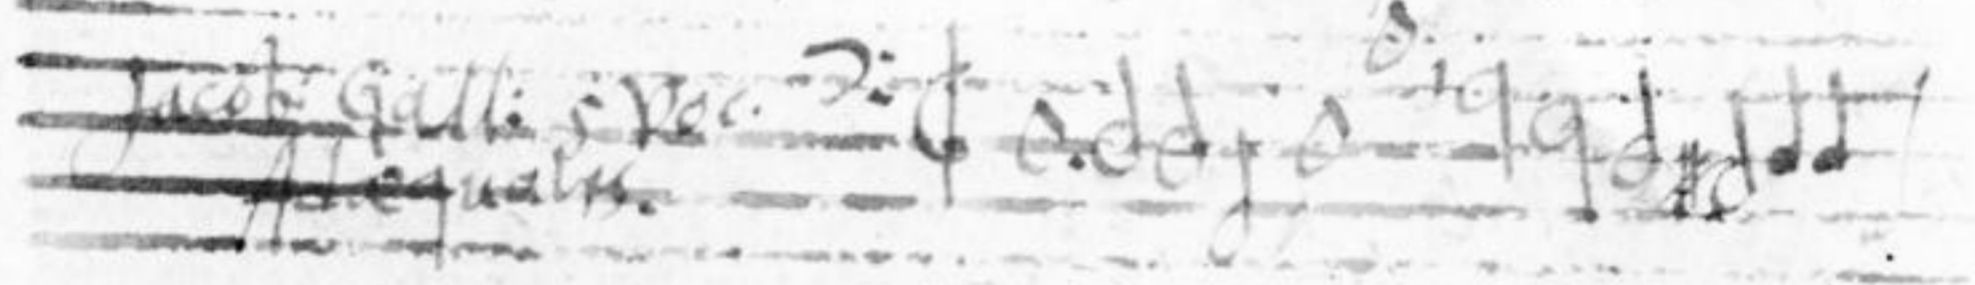 Jacob Galli 5 Voc.
Ad equales.